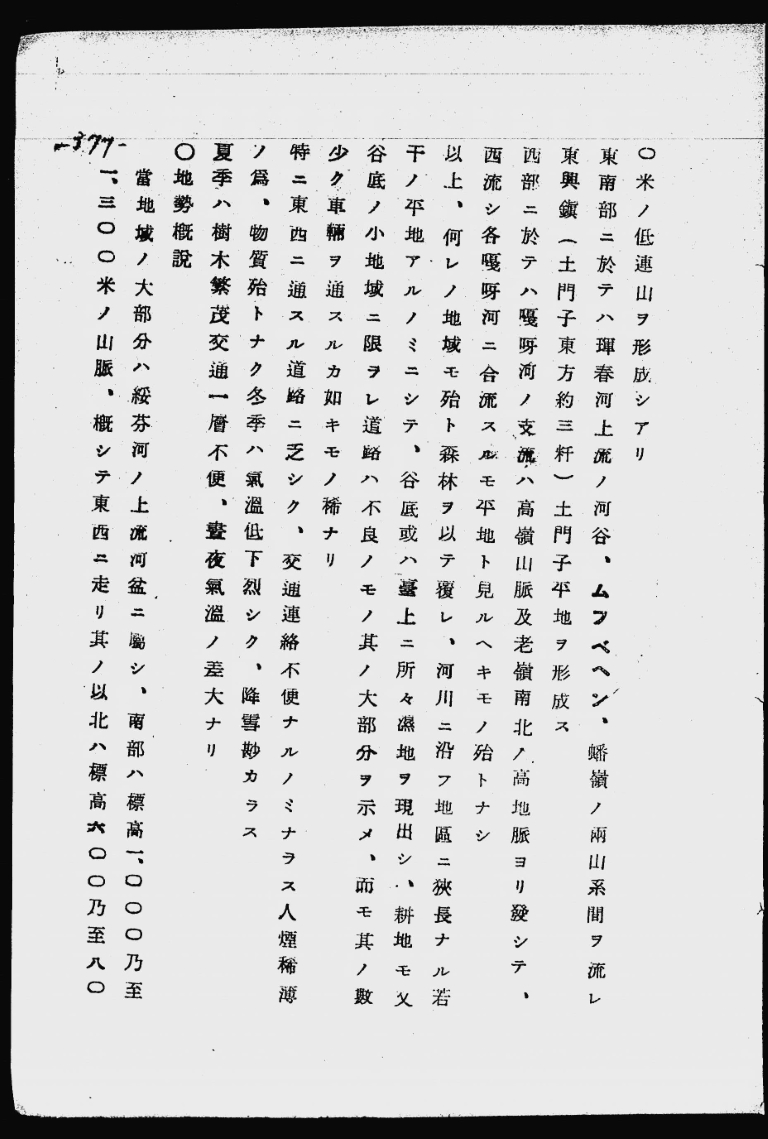 〇米ノ低連山ヲ形成シアリ
東南部ニ於テハ琿春河上流ノ河谷、ムフベヘン、蟠嶺ノ兩山系間ヲ流レ
東興鎭(土門子東方約三粁)土門子平地ヲ形成ス
西部ニ於テハ嘎呀河ノ支流ハ高嶺山脈及老嶺南北ノ高地脈ヨリ發シテ、
西流シ各嘎呀河ニ合流スルモ平地ト見ルヘキモノ殆トナシ
以上、何レノ地域モ殆ト森林ヲ以テ覆レ、河川ニ沿フ地區ニ狹長ナル若
干ノ平地アルノミニシテ、谷底或ハ臺上ニ所々濕地ヲ現出シ、耕地モ又
谷底ノ小地域ニ限ヲレ道路ハ不良ノモノ其ノ大部分ヲ示メ、而モ其ノ數
少ク車輛ヲ通スルカ如キモノ稀ナリ
特ニ東西ニ通スル道路ニ乏シク、交通連絡不便ナルノミナラス人煙稀薄
ノ爲、物質殆トナク冬季ハ氣溫低下烈シク、降雪尠カラス
夏季ハ樹木繁茂交通一層不便、晝夜氣溫ノ差大ナリ
〇地勢概說
當地域ノ大部分ハ綏芬河ノ上流河盆ニ屬シ、南部ハ標高一、〇〇〇乃至
一、三〇〇米ノ山脈、概シテ東西ニ走リ其ノ以北ハ標高六〇〇乃至八〇
-377-